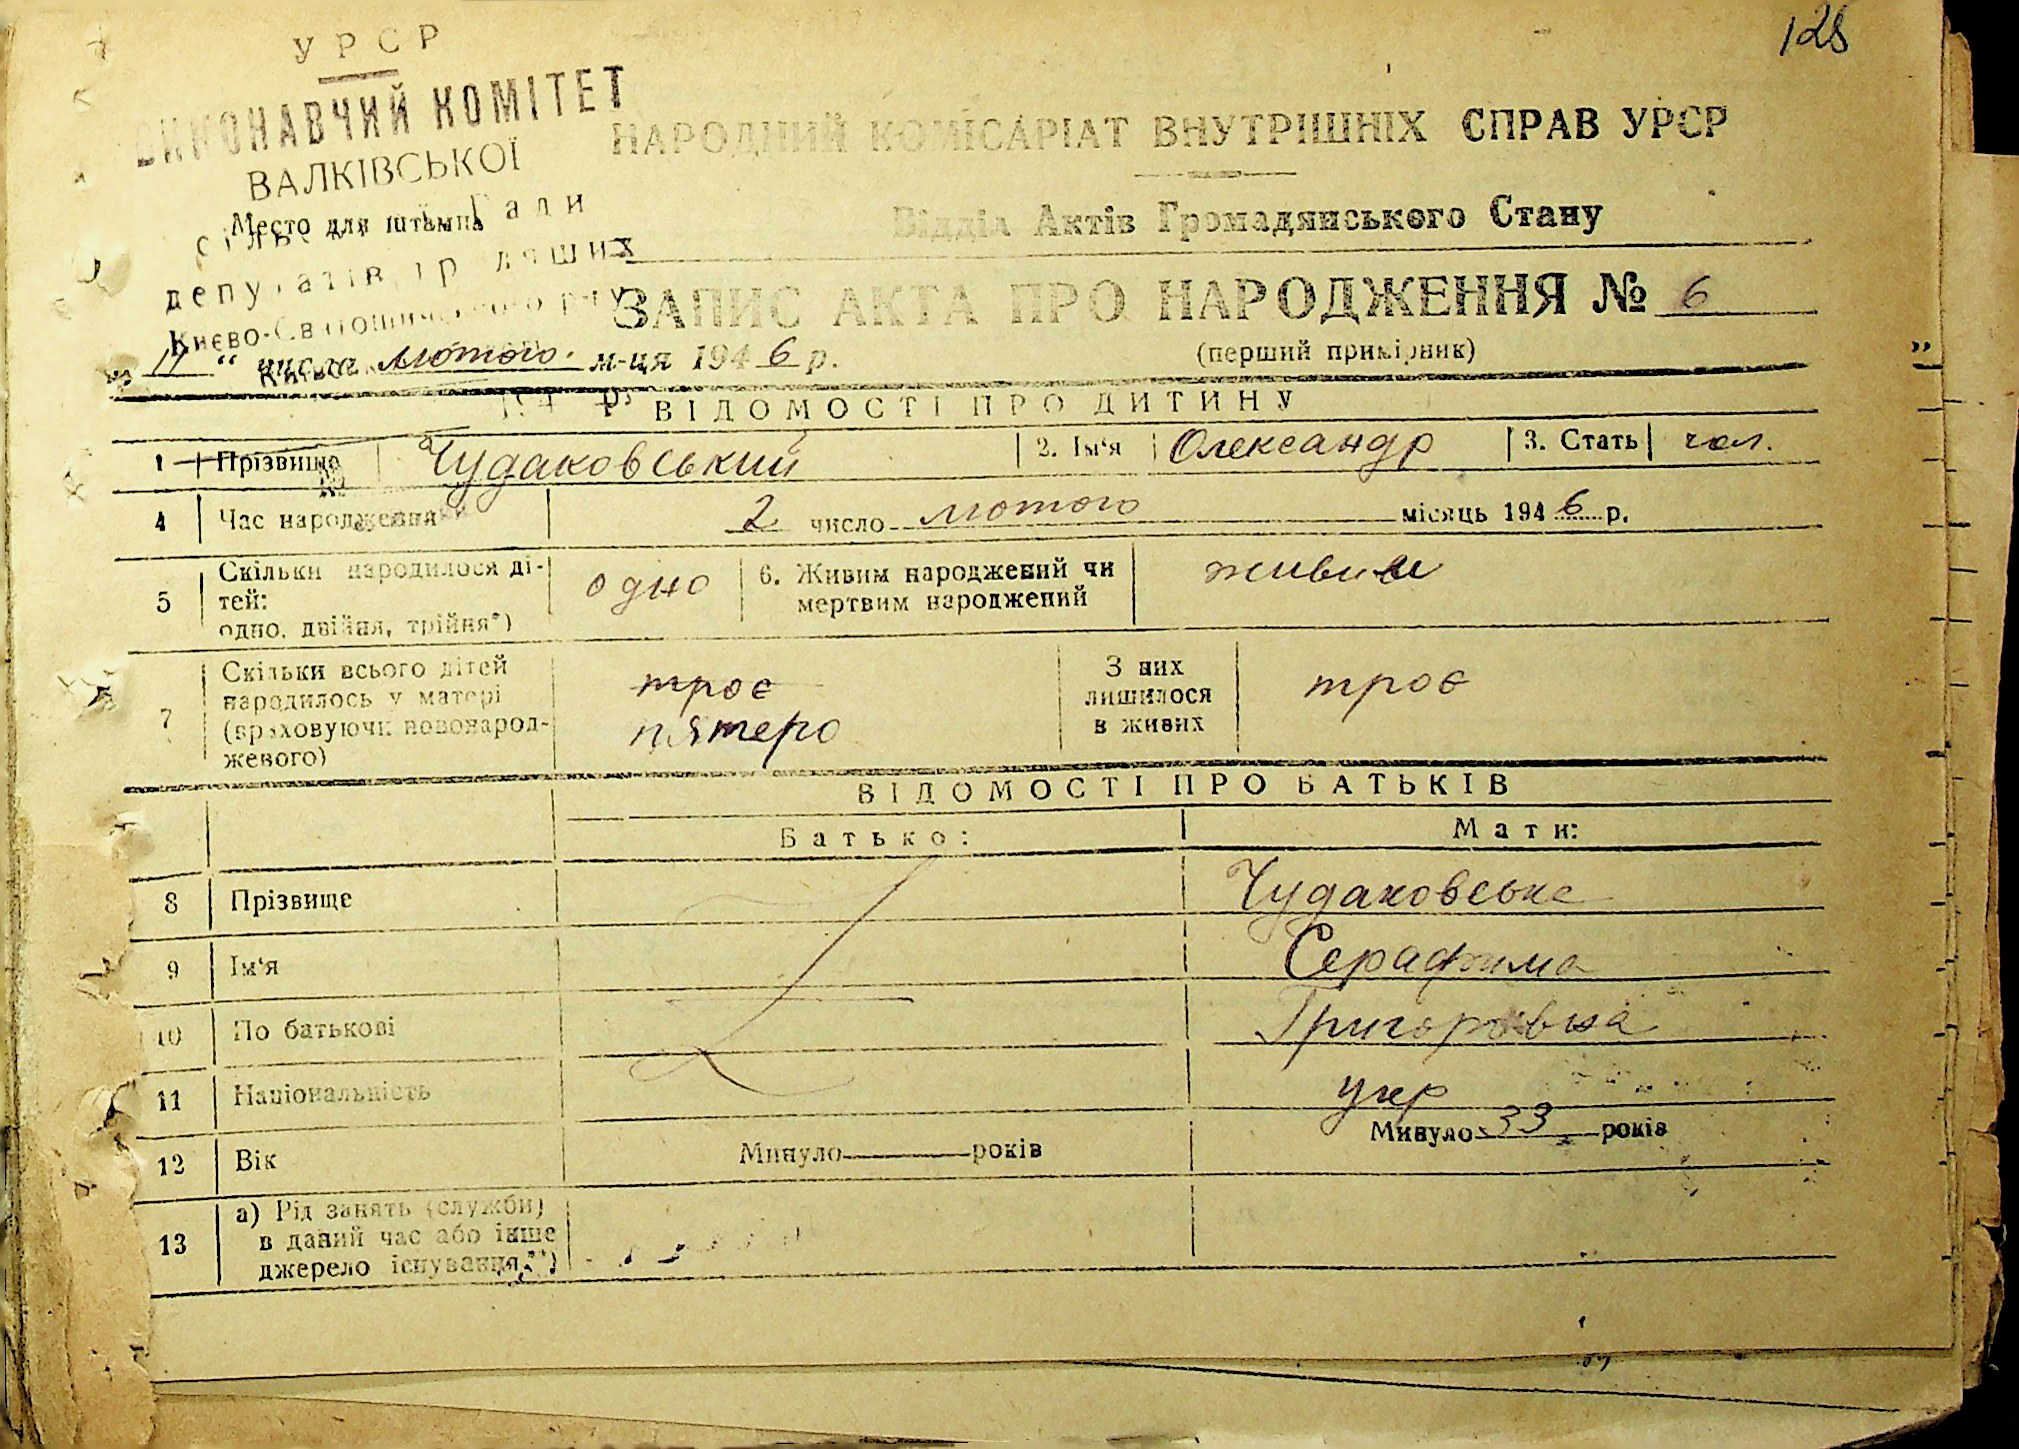 128
УРСР
ВИКОНАВЧИЙ КОМІТЕТ
ВАЛКІВСЬКОЇ
Место для штампа
Ради
депутатів
НАРОДНИЙ КОМІСАРІАТ ВНУТРІШНІХ СПРАВ УРСР
Відділ Актів Громадянського Стану
ЗАПИС АКТА ПРО НАРОДЖЕННЯ № 6
(перший примірник)
„ 11 “ числа лютого м-ця 1946 р.
ВІДОМОСТІ ПРО ДИТИНУ
1 Прізвище Чудаковський 2. Ім‘я Олександр 3. Стать чол.
4 Час народження 2 число лютого місяць 1946 р.
5 Скільки народилося ді-
тей:
одно, двійня, трійня*) одно 6. Живим народжений чи
мертвим народжений живим
7 Скільки всього дітей
народилось у матері
(враховуючи новонарод-
жевого) троє
пятеро
З них
лишилося
в живих троє
ВІДОМОСТІ ПРО БАТЬКІВ
Батько: Мати:
8 Прізвище Чудаковська
9 Ім‘я Серафима
10 По батькові Григоровна
11 Національність укр
12 Вік Минуло років Минуло 33 років
13 а) Рід занять (служби)
в даний час або інше
джерело існування**)